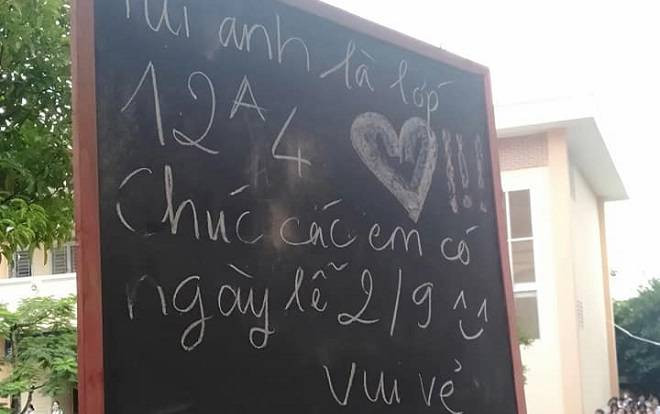 Tụi anh là lớp
12A4 !!!
Chúc các em có
ngày lễ 2/9 ^^
vui vẻ